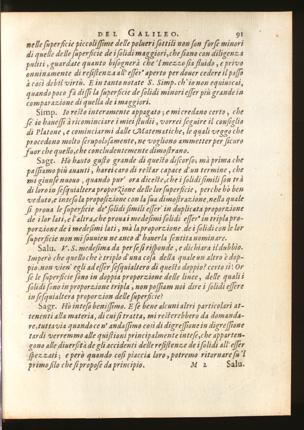 DEL GALILEO. 91
nelle superficie piccolissime delle polueri sottili non son forse minori
di quelle delle superficie de i solidi maggiori, che siano con diligenza
puliti, guardate quanto bisognerà che'l mezzo sia fluido, e priuo
onninamente di resistenza all'esser aperto per douer cedere il passo
à così debil virtù. E in tanto notate S. Simp. ch'io non equiuocai,
quando poco fà dissi la superficie de solidi minori esser più grande in
comparazione di quella de i maggiori.
Simp. Io resto interamente appagato; e mi credano certo, che
se io hauessi à ricominciare i miei studii, vorrei seguire il consiglio
di Platone, e cominciarmi dalle Matematiche, le quali veggo che
procedono molto scrupolosamente, ne vogliono ammetter per sicuro
fuor che quello, che concludentemente dimostrano.
Sagr. Hò hauto gusto grande di questo discorso; mà prima che
passiamo più auanti, harei caro di restar capace d'un termine, che
mi giunse nuouo, quando pur' ora diceste, che i solidi simili son trà
di loro in sesquialtera proporzione delle lor superficie, perche hò ben
veduto, e inteso la proposizione con la sua dimostrazione, nella quale
si proua le superficie de' solidi simili esser' in duplicata proporzione
de i lor lati, e l'altra, che proua i medesimi solidi esser' in tripla pro-
porzione de i medesimi lati, mà la proporzione de i solidi con le lor
superficie non mi souuien ne anco d'hauerla sentita nominare.
Salu. V. S. medesima da per se si risponde, e dichiara il dubbio.
Imperò che quello che è triplo d'una cosa della quale un altro è dop-
pio, non vien' egli ad esser sesquialtero di questo doppio? certo si: Or
se le superficie sono in doppia proporzione delle linee, delle quali i
solidi sono in proporzione tripla, non possiam noi dire i solidi essere
in sesquialtera proporzion delle superficie?
Sagr. Hò inteso benissimo. E se bene alcuni altri particolari at-
tenenti alla materia, di cui si tratta, mi resterebbero da domanda-
re, tutta via quando ce n' andassimo così di digressione in digressione
tardi verremmo alle quistioni principalmente intese, che apparten-
gono alle diuersità de gli accidenti delle resistenze de i solidi all'esser
spezzati; e però quando così piaccia loro, potremo ritornare su'l
primo filo che si propose da principio. M 2 Salu.